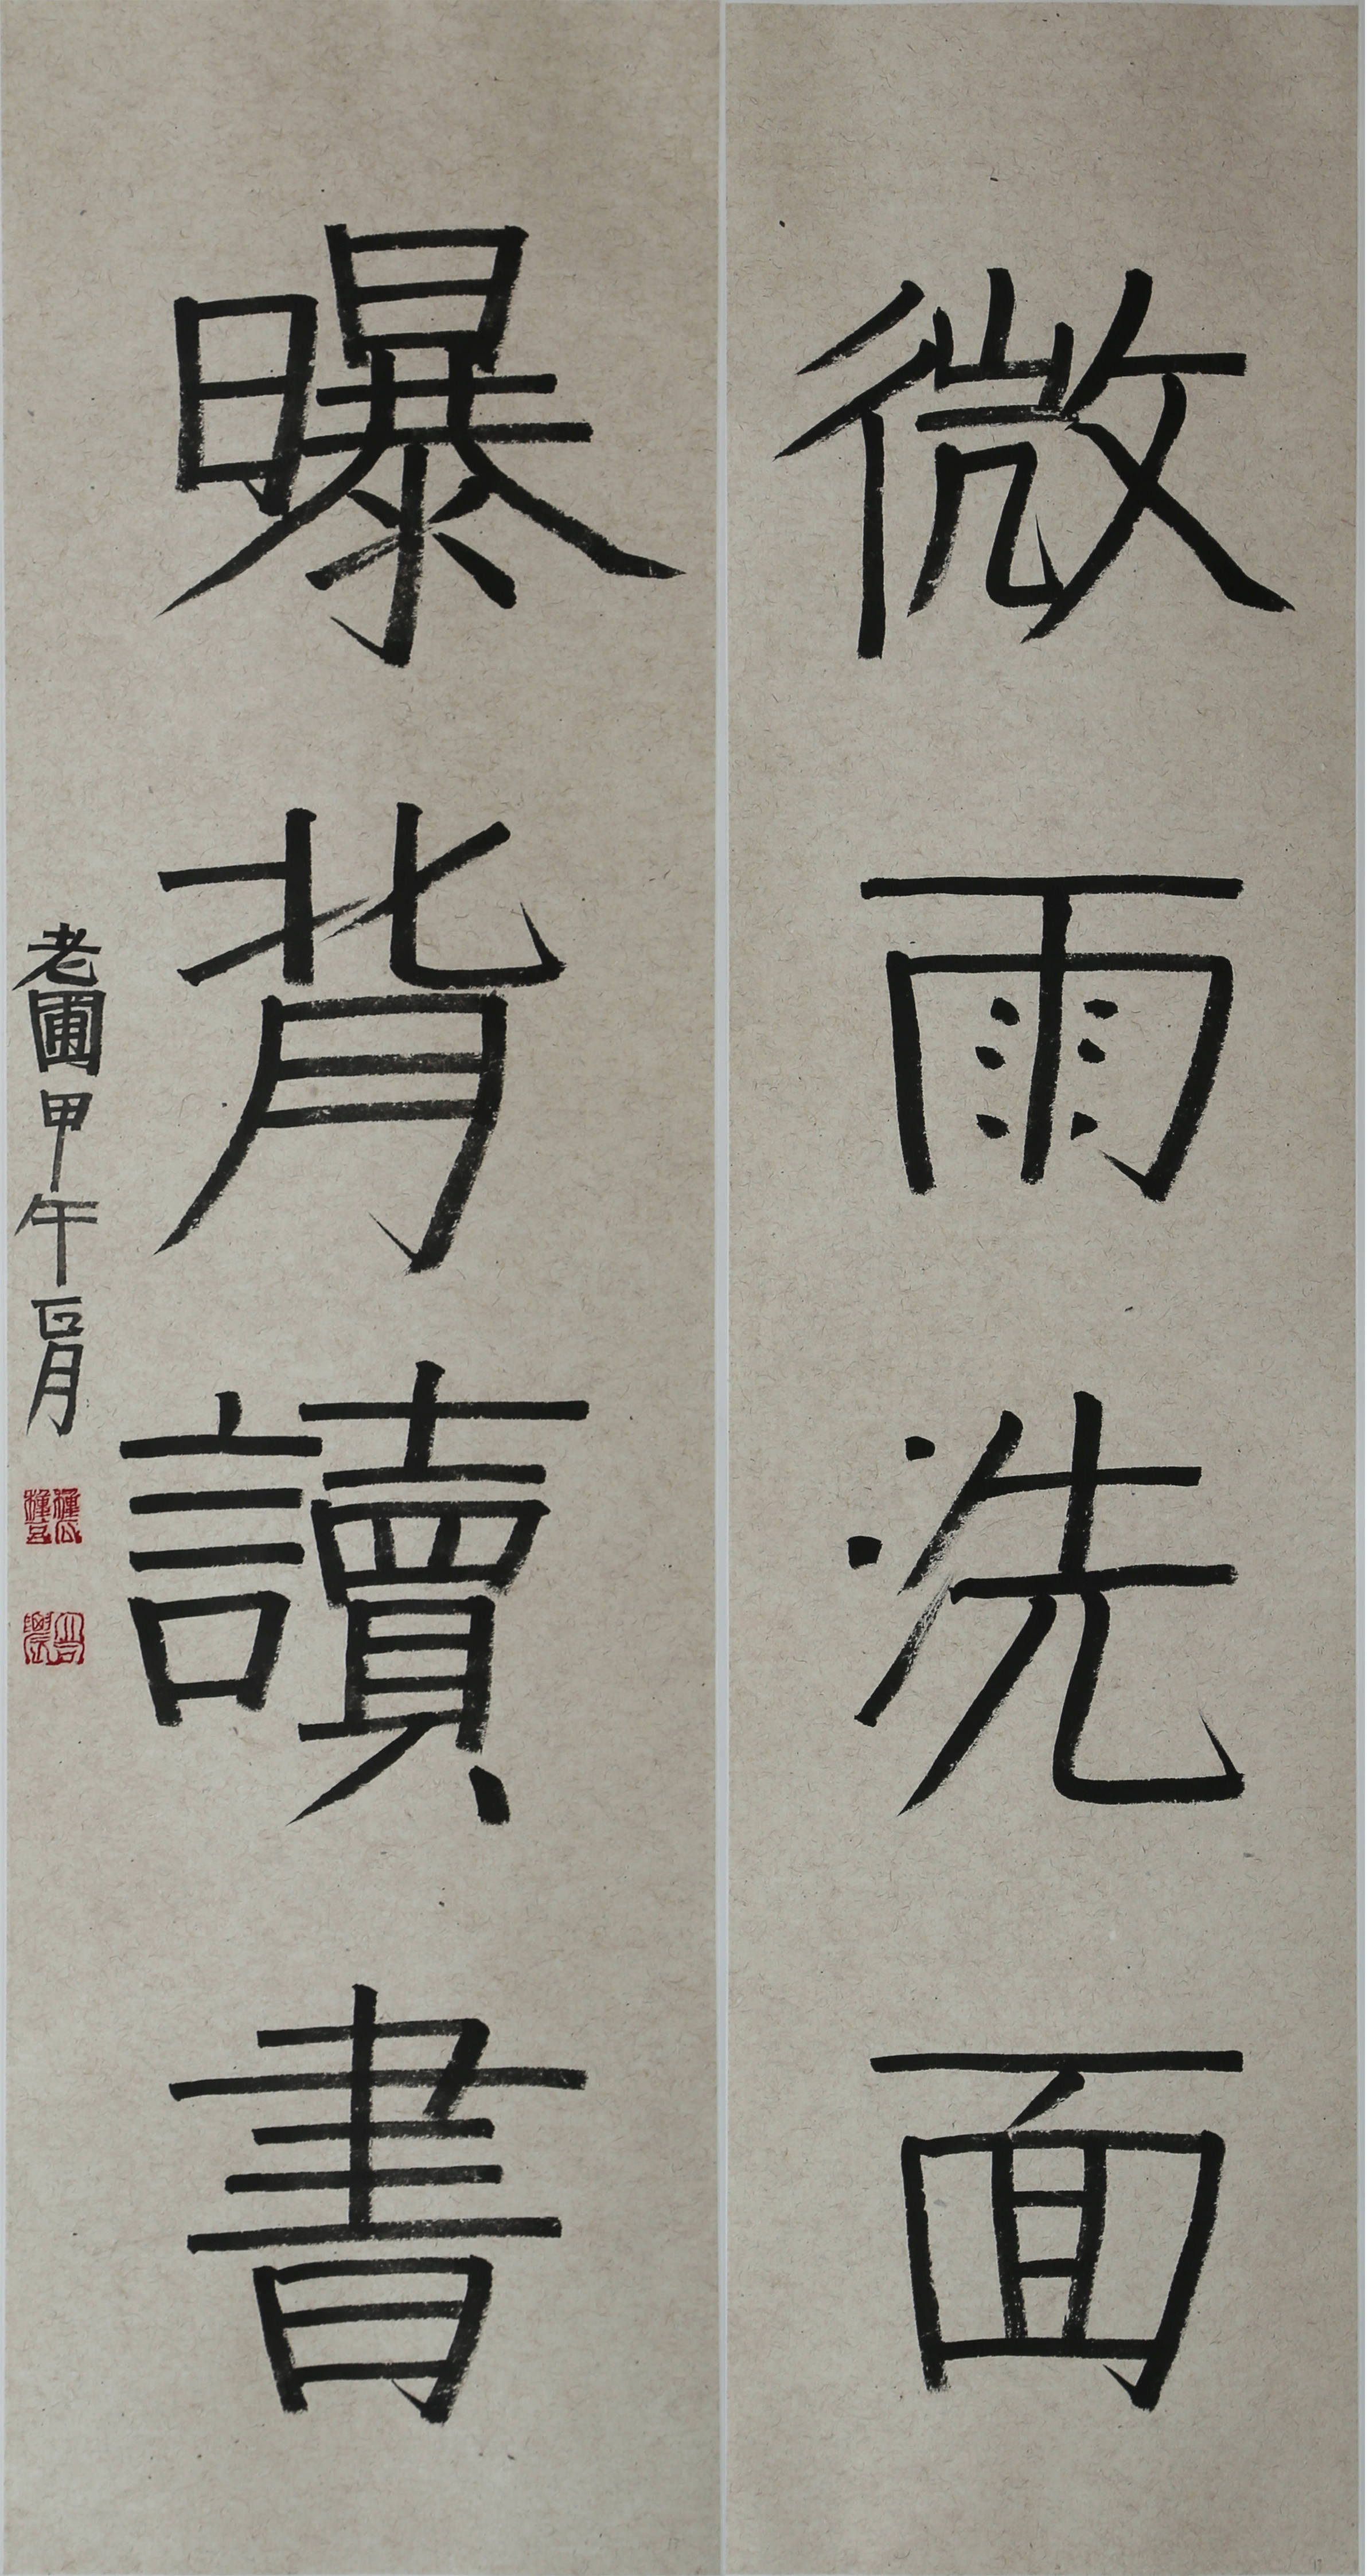 微雨洗面
曝背讀書
老圃甲午正月